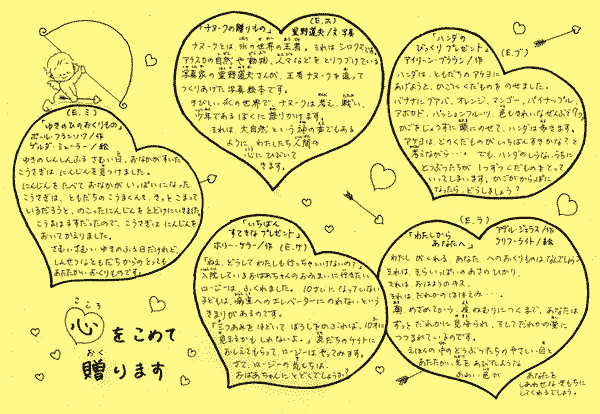 (E.ホ)
「ナヌークの贈りもの」
星野道夫/文・写真
ナヌークとは、氷の世界の王者、それはシロクマです。
アラスカの自然や動物、人々などをとりつづけている
写真家の星野道夫さんが、王者ナヌークを追って
つくりあげた写真絵本です。
きびしい氷の世界で、ナヌークは考え、戦い、
少年であるぼくに語りかけます。
それは、大自然という神の声でもある
ように、わたしたち人間の
心にひびいて
きます。
(E.ブ)
「ハンダの
びっくりプレゼント」
アイリーン・ブラウン/作
ハンダは、ともだちのアケヨに
あげようと、かごにくだものをのせました。
バナナにグァバ、オレンジ、マンゴー、パイナップル、
アボカド、パッションフルーツ、
かごをじょうずに頭にのせて、ハンダは歩きます。
アケヨは、どのくだものがいちばんすきかな?と
考えながら・・・ でも、ハンダのしらないうちに
どうぶつたちが 1つずつくだものをとって
いってしまいます。かごがからっぽに
なったら、どうしましょう?
(E.ミ)
「ゆきのひのおくりもの」
ポール・フランソワ/作
ゲルダ・ミューラー/絵
ゆきのしんしんふるさむい日、おなかがすいた
こうさぎは、にんじんを見つけました。
にんじんをたべておなかがいっぱいになった
こうさぎは、ともだちのこうまくんも、きっとこまって
いるだろうと、のこったにんじんをとどけにいきました。
こうまはるすだったので、こうさぎは にんじんを
おいてかえりました。
さむいさむいゆきのふる日だけれど、
しんせつなともだちからのとっても
あたたかいおくりものです。
「いちばん
すてきなプレゼント」
ホリー・ケラー/作 (E.ケ)
「ねえ、どうしてわたしも行っちゃいけないの?」
入院しているおばあちゃんのおみまいに行きたい
ロージーは、ふくれました。10さいになっていない
子どもは、病室へのエレベーターにのれないという
きまりがあるのです。
「三つあみをほどいてぼうしをかぶれば、10さいに
見えるかもしれないよ。」友だちのケイトに
おしえてもらって、ロージーはやってみます。
さて、ロージーの気もちは、
おばあちゃんにとどくでしょうか?
(E.ラ)
「わたしから
あなたへ」
アデル・ジェラス/作
クリフ・ライト/絵
わたしがくれる、あなたへのおくりものはなんでしょう?
それは、そらいっぱいのあさのひかり。
それは、おはようのキス。
それは、だれかのほほえみ・・・。
朝、めざめてから、夜ねむりにつくまで、あなたは
ずっとだれかに見守られ、そしてだれかの愛に
つつまれているのです。
えほんの中のどうぶつたちのやさしい目と
あたたかい光をあびたような
あわい色が
あなたを
しあわせなきもちに
してくれるでしょう。
こころ
心をこめて
おく
贈ります